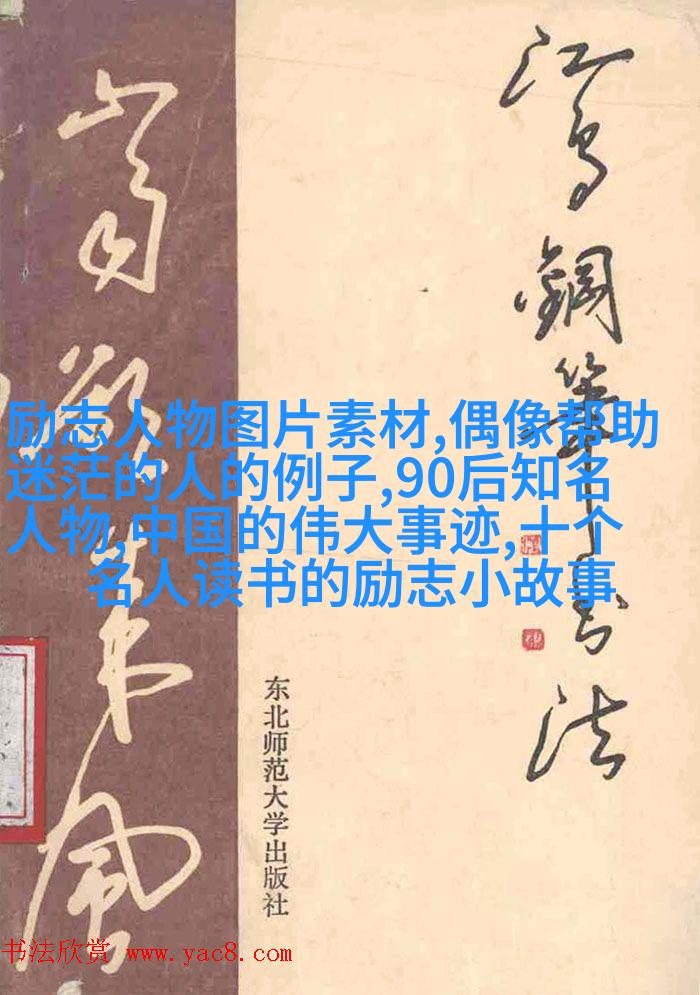 江鸟鋼筆书法
励志人物图片素材,偶像帮助
迷茫的人的例子,90后知名
人物,中国的伟大事迹,十个
名人读书的励志小故事
东北师范大学出版社
书法欣赏 www.yac8.com